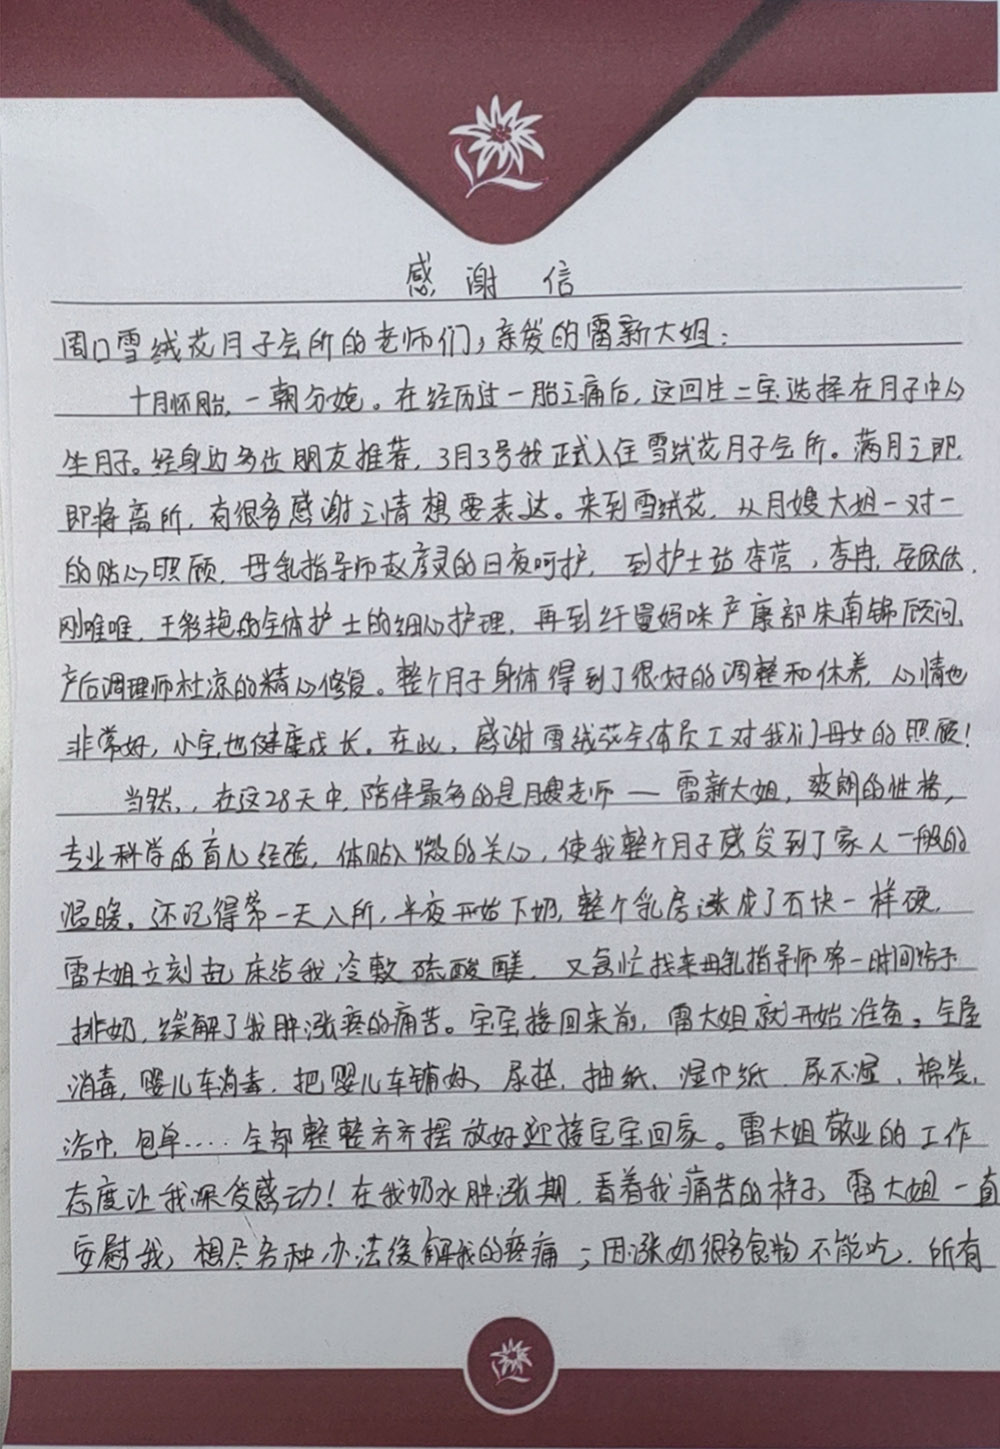 感谢信
周口雪绒花月子会所的老师们,亲爱的雷新大姐:
十月怀胎,一朝分娩。在经历过一胎之痛后,这回生二宝选择在月子中心
坐月子。经身边多位朋友推荐,3月3号我正式入住雪绒花月子会所。满月之即,
即将离所,有很多感谢之情想要表达。来到雪绒花,从月嫂大姐一对一
的贴心照顾,母乳指导师赵彦灵的日夜呵护,到护士站李营,李冉,安欣依,
刚唯唯,王彩艳的全体护士的细心护理,再到纤曼妈咪产康部朱南锦顾问,
产后调理师杜凉的精心修复。整个月子身体得到了很好的调整和休养,心情也
非常好,小宝也健康成长。在此,感谢雪绒花全体员工对我们母女的照顾!
当然,,在这28天中,陪伴最多的是月嫂老师——雷新大姐,爽朗的性格,
专业科学的育儿经验,体贴入微的关心,使我整个月子感受到了家人一般的
温暖。还记得第一天入所,半夜开始下奶,整个乳房涨成了石块一样硬,
雷大姐立刻起床给我冷敷硫酸镁,又急忙找来母乳指导师第一时间给予
排奶,缓解了我肿涨疼的痛苦。宝宝接回来前,雷大姐就开始准备。全屋
消毒,婴儿车消毒,把婴儿车铺好,尿垫,抽纸、湿巾纸、尿不湿、棉签,
浴巾,包单……全部整整齐齐摆放好迎接宝宝回家。雷大姐敬业的工作
态度让我深受感动!在我奶水肿涨期,看着我痛苦的样子,雷大姐一直
安慰我,想尽各种办法缓解我的疼痛;因涨奶很多食物不能吃,所有